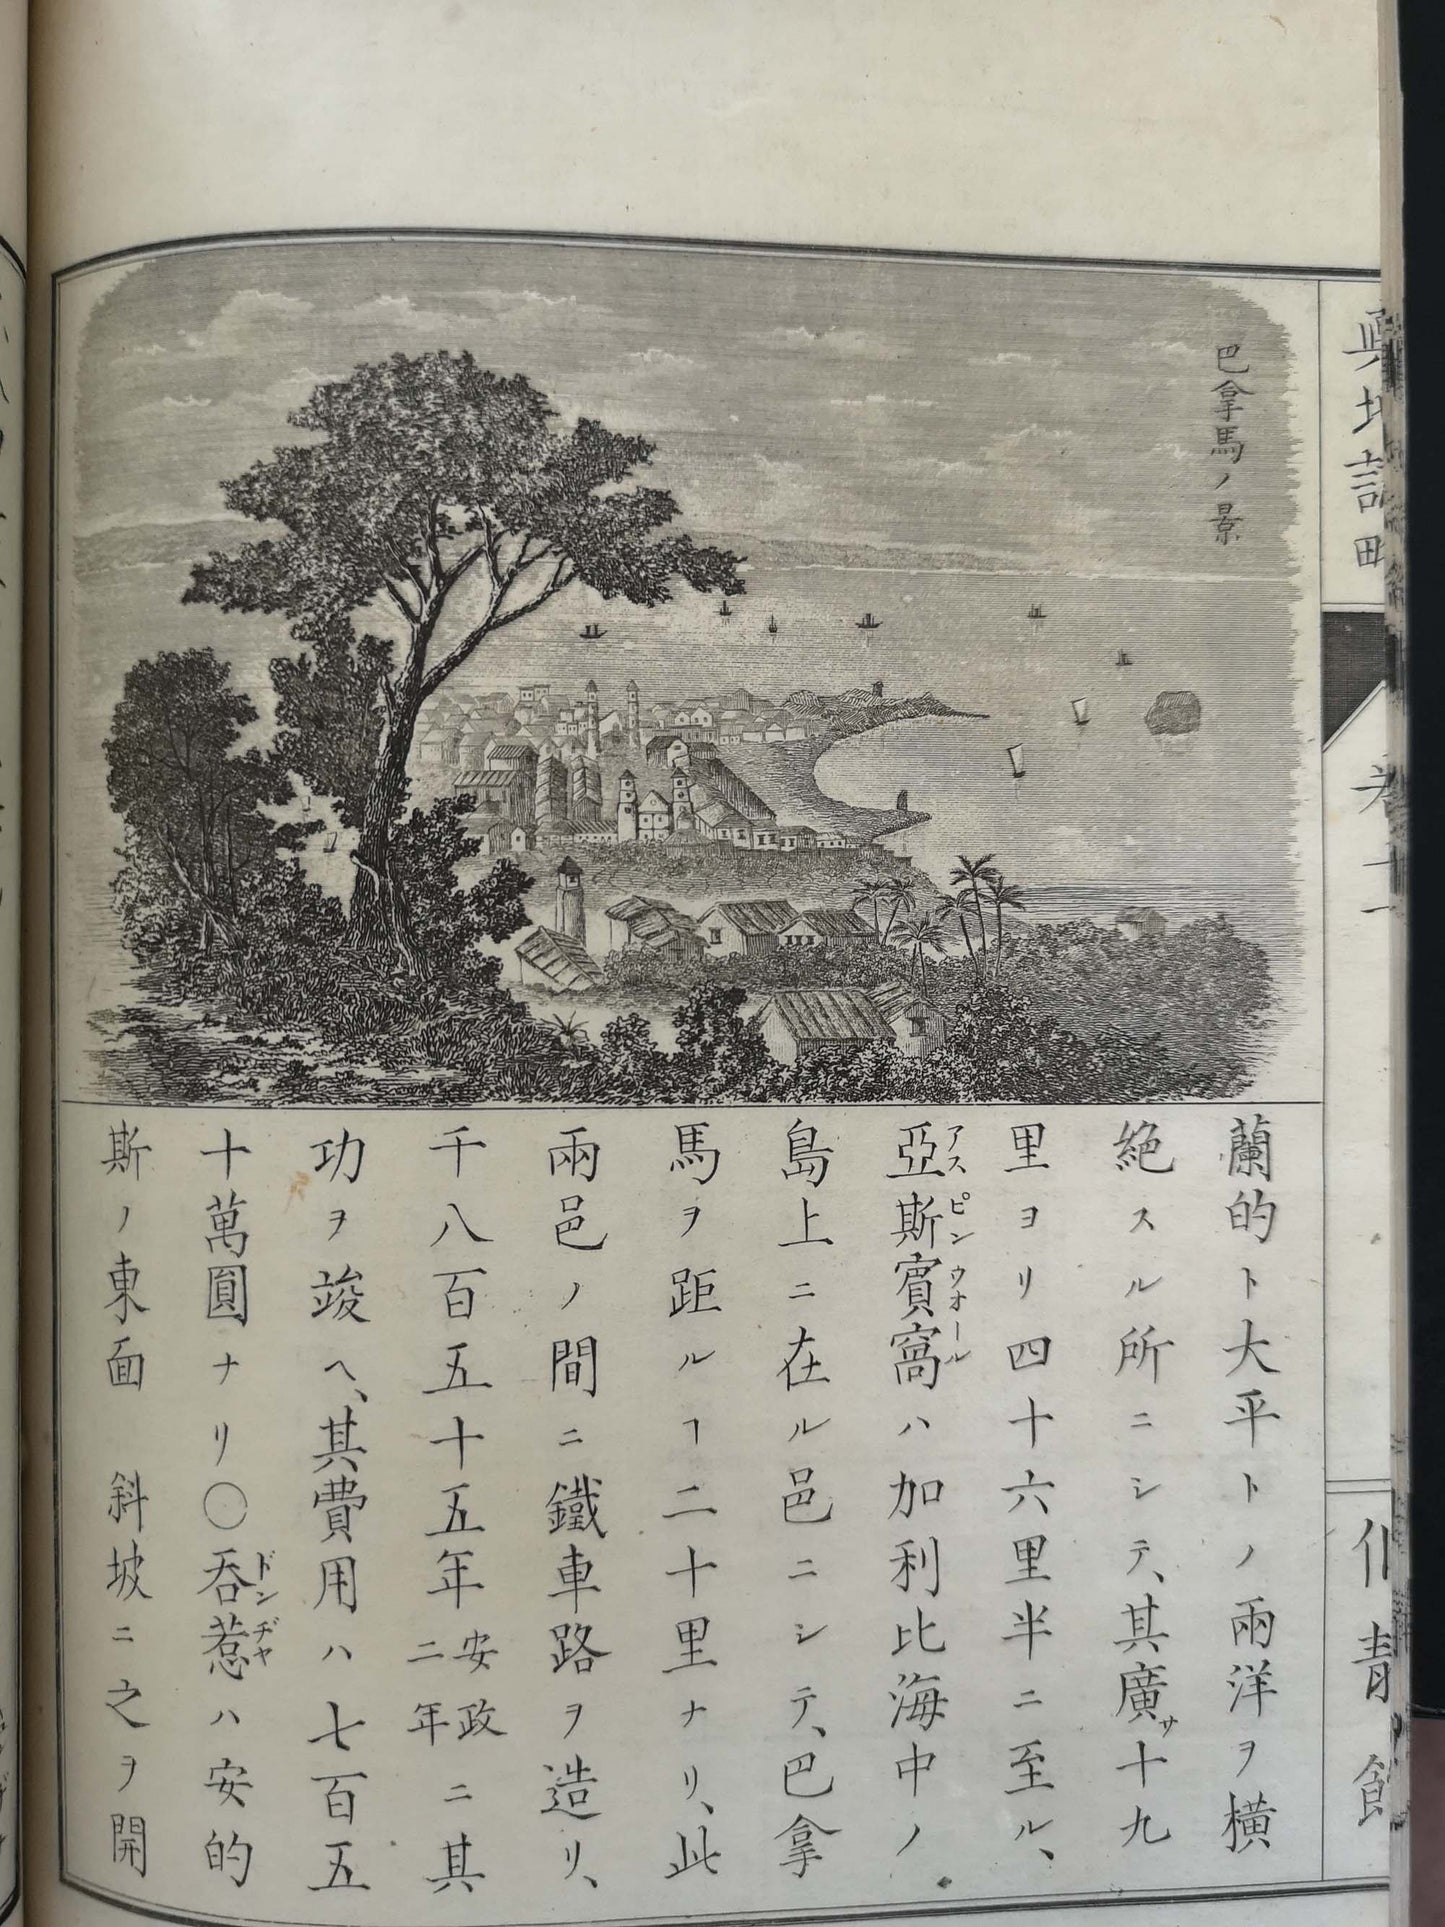 巴拿馬ノ景
蘭的ト大平トノ兩洋ヲ橫
絶スル所ニシテ、其廣サ十九
里ヨリ四十六里半ニ至ル、
亞斯賓窩ハ加利比海中ノ
アスピンウオール
島上ニ在ル邑ニシテ、巴拿
馬ヲ距ルヿ二十里ナリ、此
兩邑ノ間ニ鐵車路ヲ造リ、
千八百五十五年安政二年ニ其
功ヲ竣ヘ、其費用ハ七百五
十萬圓ナリ〇呑惹ハ安的
ドンヂヤ
斯ノ東面斜坡ニ之ヲ開